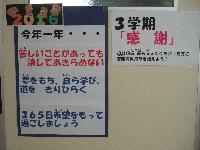 2016
今年一年・・・
苦しいことがあっても
決してあきらめない
夢をもち、自ら学び、
道を きりひらく
365日希望をもって
過ごしましょう
3学期
「感謝」